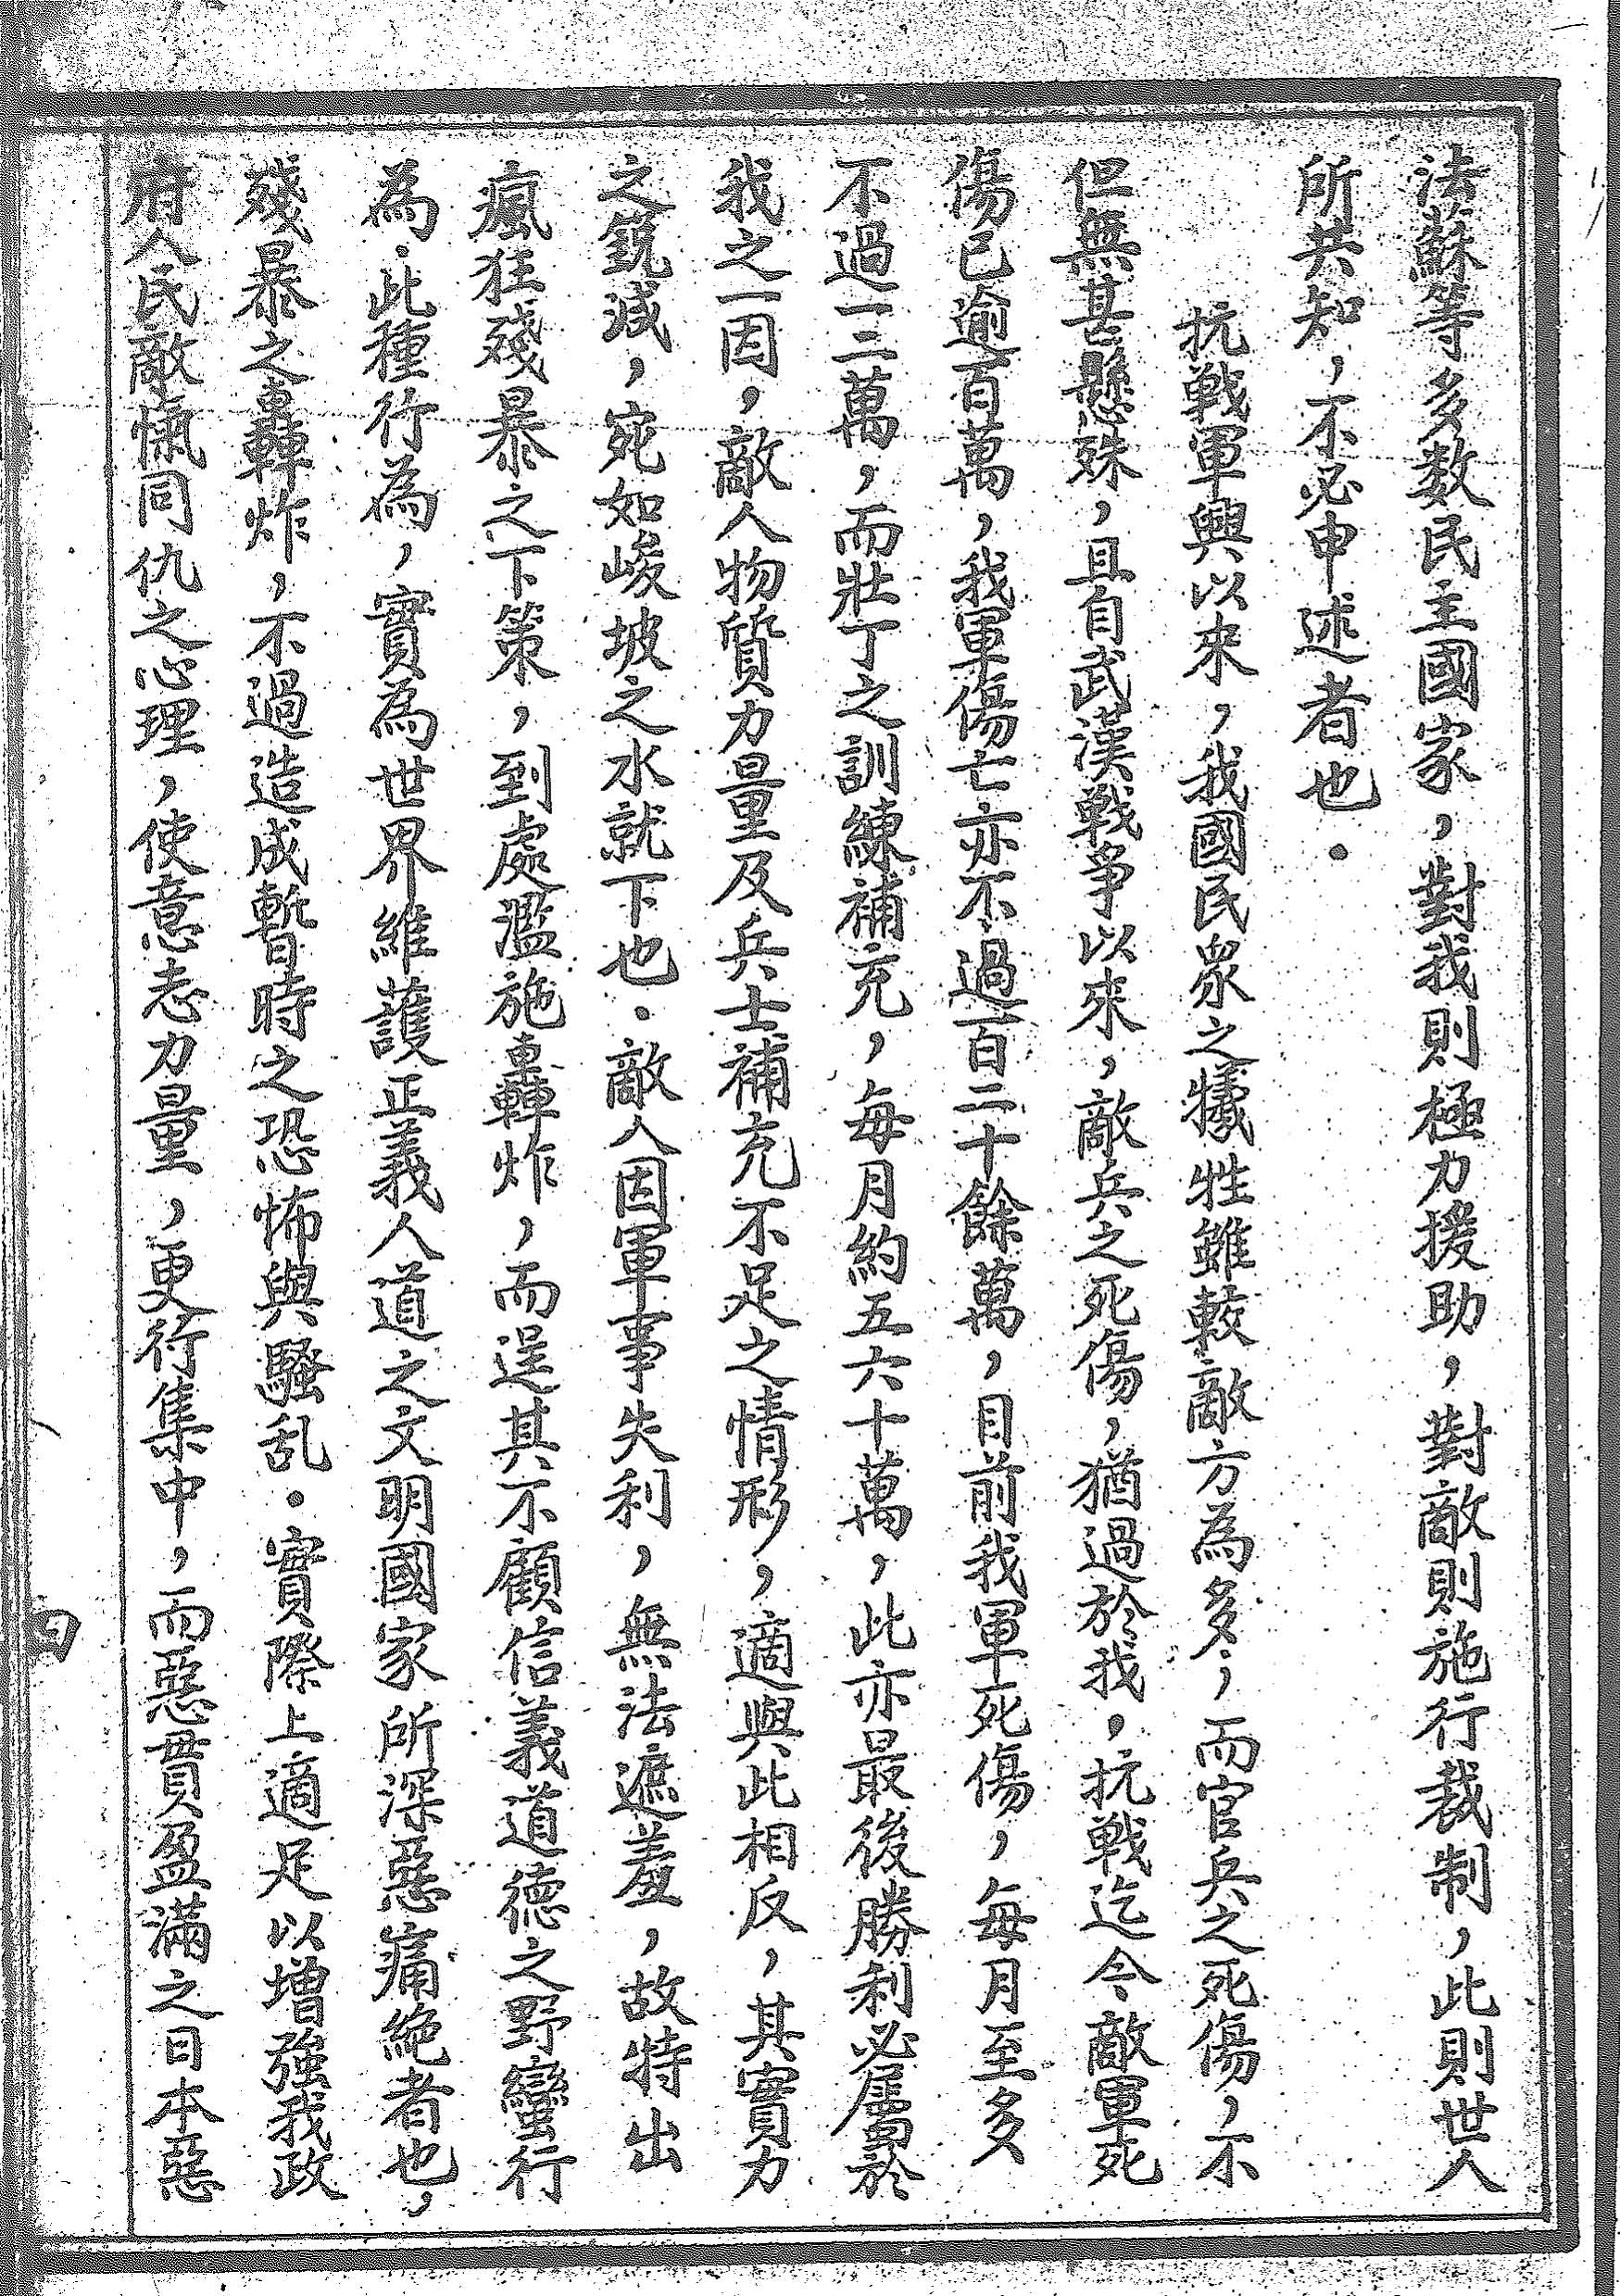 法蘇等多数民主國家，對我則極力援助，對敵則施行裁制，此則世人
所共知，不必申述者也．
抗戰軍興以來，我國民眾之犧牲雖較敵方為多，而官兵之死傷，不
但無甚懸殊，且自武漢戰爭以來，敵兵之死傷，猶過於我，抗戰迄今敵軍死
傷已逾百萬，我軍傷亡亦不過百二十餘萬，目前我軍死傷，每月至多
不過一二萬，而壯丁之訓練補充，每月約五六十萬，此亦最後勝利必屬於
我之一因，敵人物質力量及兵士補充不足之情形，適與此相反，其實力
之銳減，宛如峻坡之水就下也．敵人因軍事失利，無法遮羞，故特出
瘋狂殘暴之下策，到處濫施轟炸，而逞其不顧信義道德之野蠻行
為．此種行為，實為世界維護正義人道之文明國家所深惡痛絕者也，
殘暴之轟炸，不過造成暫時之恐怖與騷乱．實際上適足以增強我政
府人民敵愾同仇之心理，使意志力量，更行集中，而惡貫盈滿之日本惡